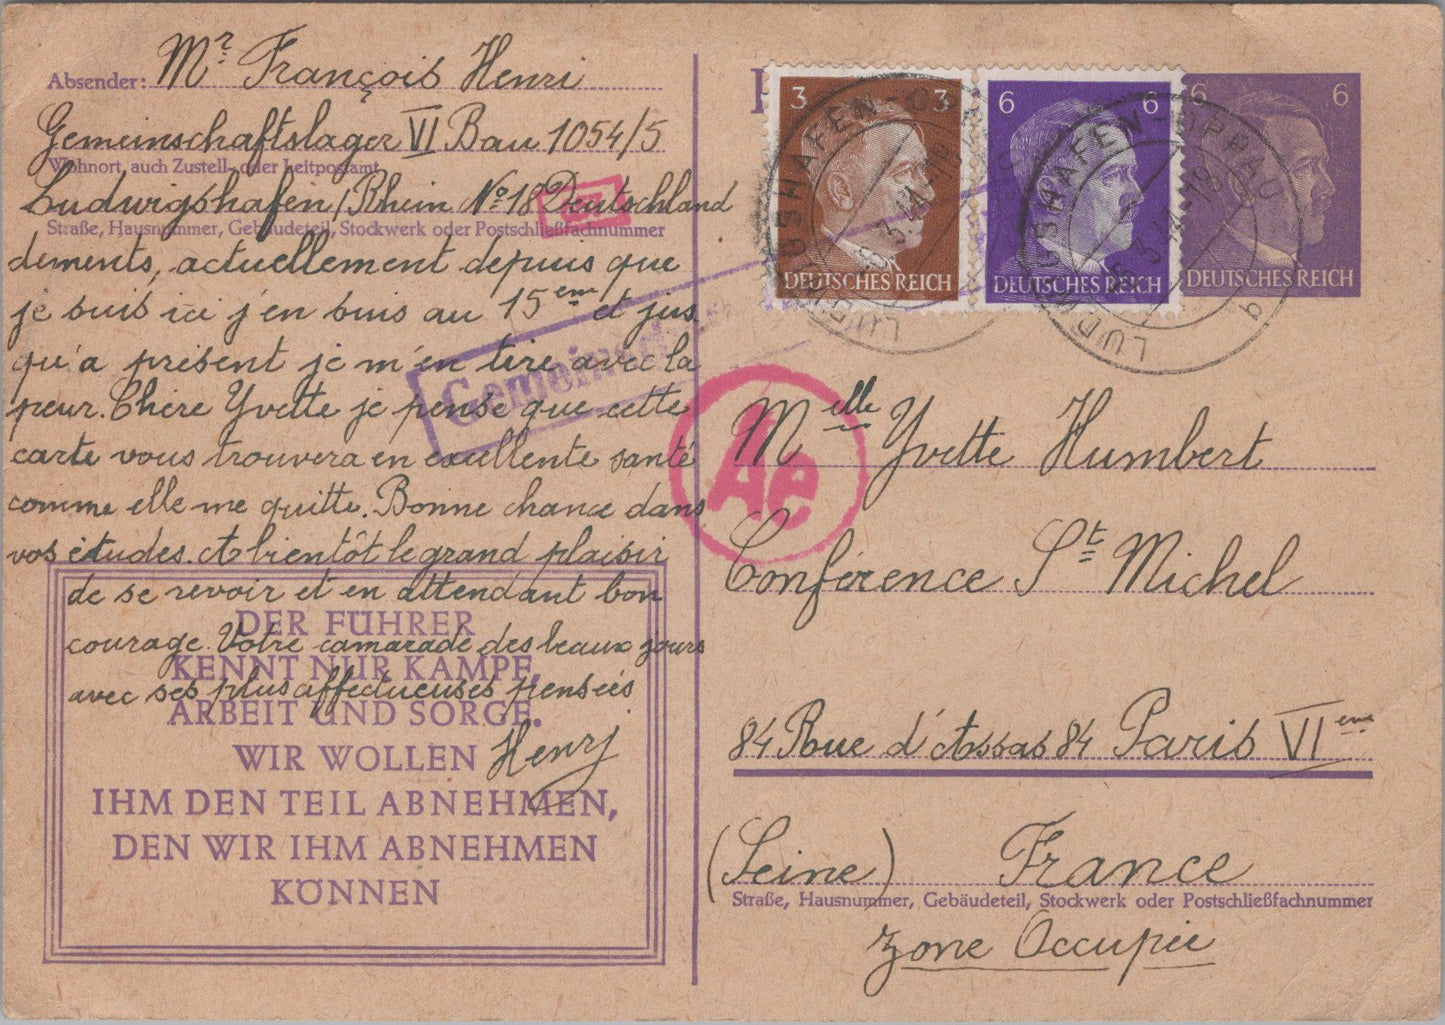 Absender: Mr François Henri
Gemeinschaftslager VI Bau 1054/5
Wohnort, auch Zustell- oder Leitpostamt
Ludwigshafen/Rhein No 18 Deutschland
Straße, Hausnummer, Gebäudeteil, Stockwerk oder Postschließfachnummer
dements, actuellement depuis que
je suis ici j'en suis au 15eme et jus
qu'a présent je m'en tire avec la
peur. Chère Yvette je pense que cette
carte vous trouvera en excellente santé
comme elle me quitte. Bonne chance dans
vos études. A bientôt le grand plaisir
de se revoir et en attendant bon
courage. Votre camarade des beaux jours
avec ses plus affectueuses pensées
Henry
DER FÜHRER
KENNT NUR KAMPF,
ARBEIT UND SORGE.
WIR WOLLEN
IHM DEN TEIL ABNEHMEN,
DEN WIR IHM ABNEHMEN
KÖNNEN
3 3
DEUTSCHES REICH
6 6
DEUTSCHES REICH
6 6
DEUTSCHES REICH
Ae
Melle Yvette Humbert
Conférence St Michel
84 Rue d'Assas 84 Paris VIeme
(Seine) France
Straße, Hausnummer, Gebäudeteil, Stockwerk oder Postschließfachnummer
Zone Occupée